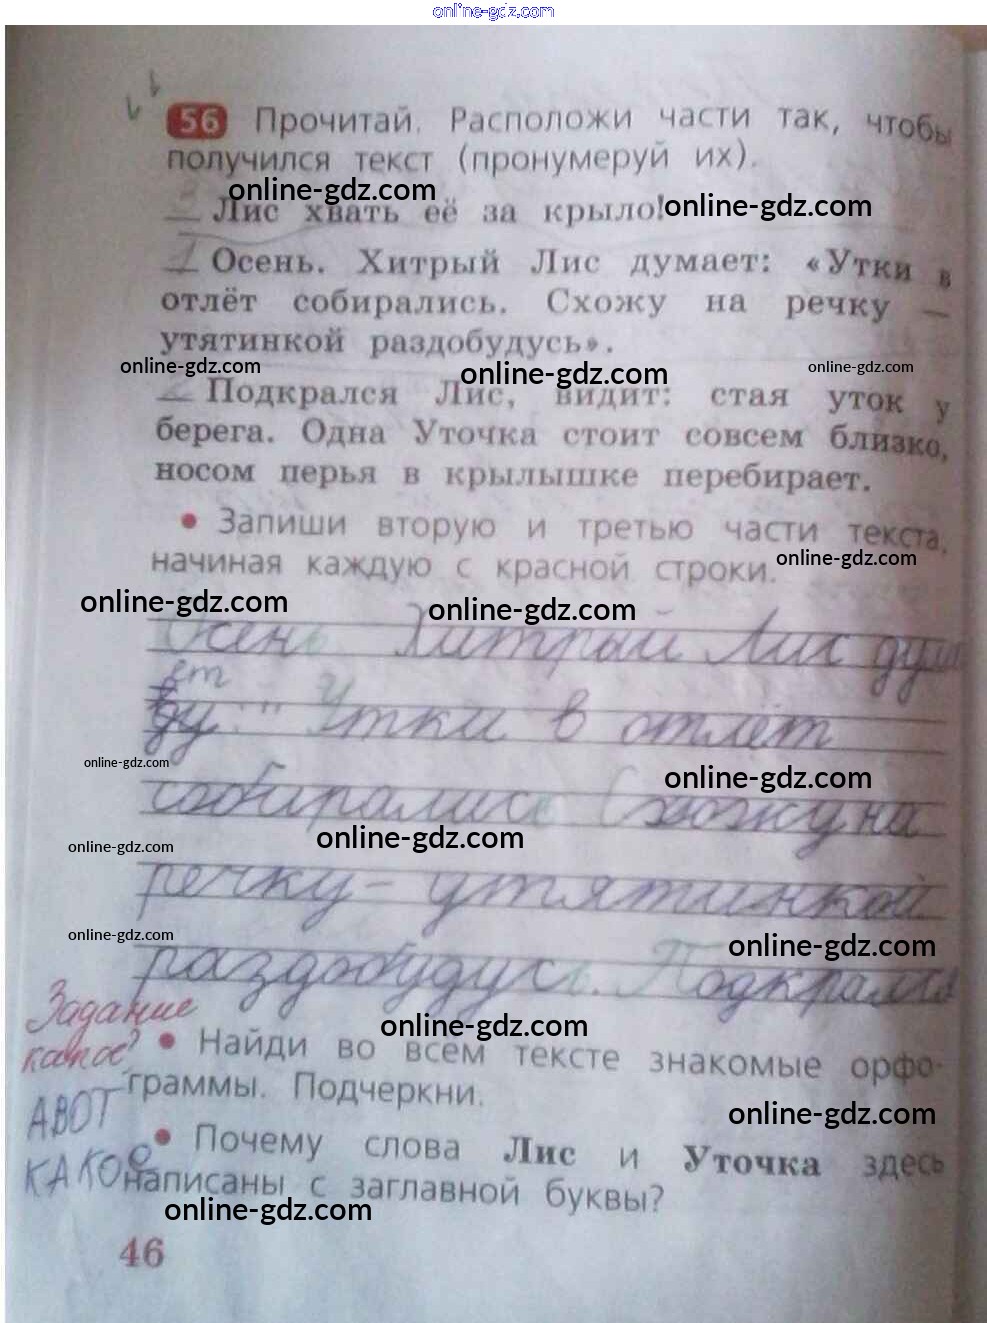 online-gdz.com
56 Прочитай. Расположи части так, чтобы
получился текст (пронумеруй их).
online-gdz.com
Лис хвать её за крыло!
online-gdz.com
1 Осень. Хитрый Лис думает: «Утки в
отлёт собирались. Схожу на речку —
утятинкой раздобудусь».
online-gdz.com
online-gdz.com
online-gdz.com
2 Подкрался Лис, видит: стая уток у
берега. Одна Уточка стоит совсем близко,
носом перья в крылышке перебирает.
• Запиши вторую и третью части текста,
начиная каждую с красной строки.
online-gdz.com
online-gdz.com
online-gdz.com
Осень Хитрый Лис дума
ет
ду " Утки в отлёт
online-gdz.com
online-gdz.com
собирались Схожу на
online-gdz.com
online-gdz.com
речку – утятинкой
online-gdz.com
online-gdz.com
раздобудусь. Подкрался
Задание
какое?
online-gdz.com
• Найди во всем тексте знакомые орфо-
граммы. Подчеркни.
АВОТ
КАКОЕ
online-gdz.com
• Почему слова Лис и Уточка здесь
написаны с заглавной буквы?
online-gdz.com
46